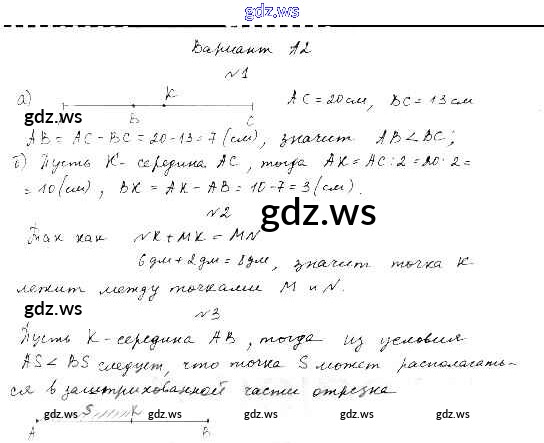 gdz.ws
Вариант А2
№1
а) K AC = 20 см, BC = 13 см
B C
gdz.ws gdz.ws
AB = AC - BC = 20 - 13 = 7 (см), значит AB < BC;
б) Пусть K - середина AC, тогда AK = AC : 2 = 20 : 2 =
= 10 (см), BK = AK - AB = 10 - 7 = 3 (см).
№2
gdz.ws gdz.ws
Так как NK + MK = MN
6 дм + 2 дм = 8 дм, значит точка K
лежит между точками M и N.
gdz.ws №3
Пусть K - середина AB, тогда из условия
AS < BS следует, что точка S может располагать-
ся в заштрихованной части отрезка
gdz.ws S K gdz.ws gdz.ws gdz.ws gdz.ws
A B